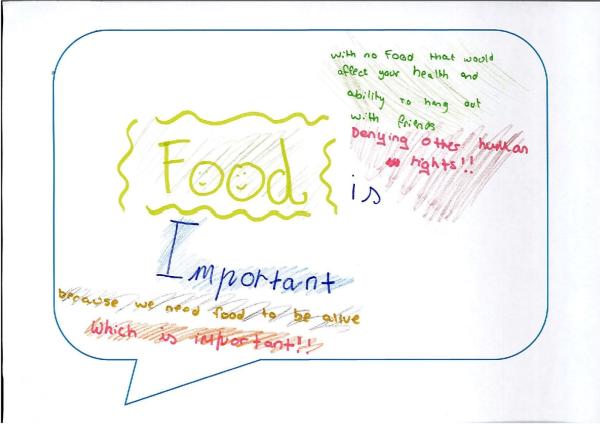 with no Food that would
affect your health and
ability to hang out
with friends
Denying other human
rights!!
Food is
Important
because we need food to be alive
which is important!!